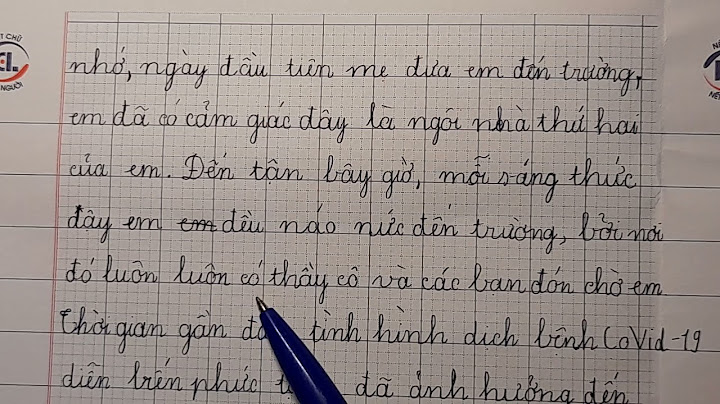 nhớ, ngày đầu tiên mẹ đưa em đến trường,
em đã có cảm giác đây là ngôi nhà thứ hai
của em. Đến tận bây giờ, mỗi sáng thức
dậy em em đều náo nức đến trường, bởi nơi
đó luôn luôn có thầy cô và các bạn đón chờ em
Thời gian gần tình hình dịch bệnh CoVid-19
diễn biến phức đã ảnh hưởng đến